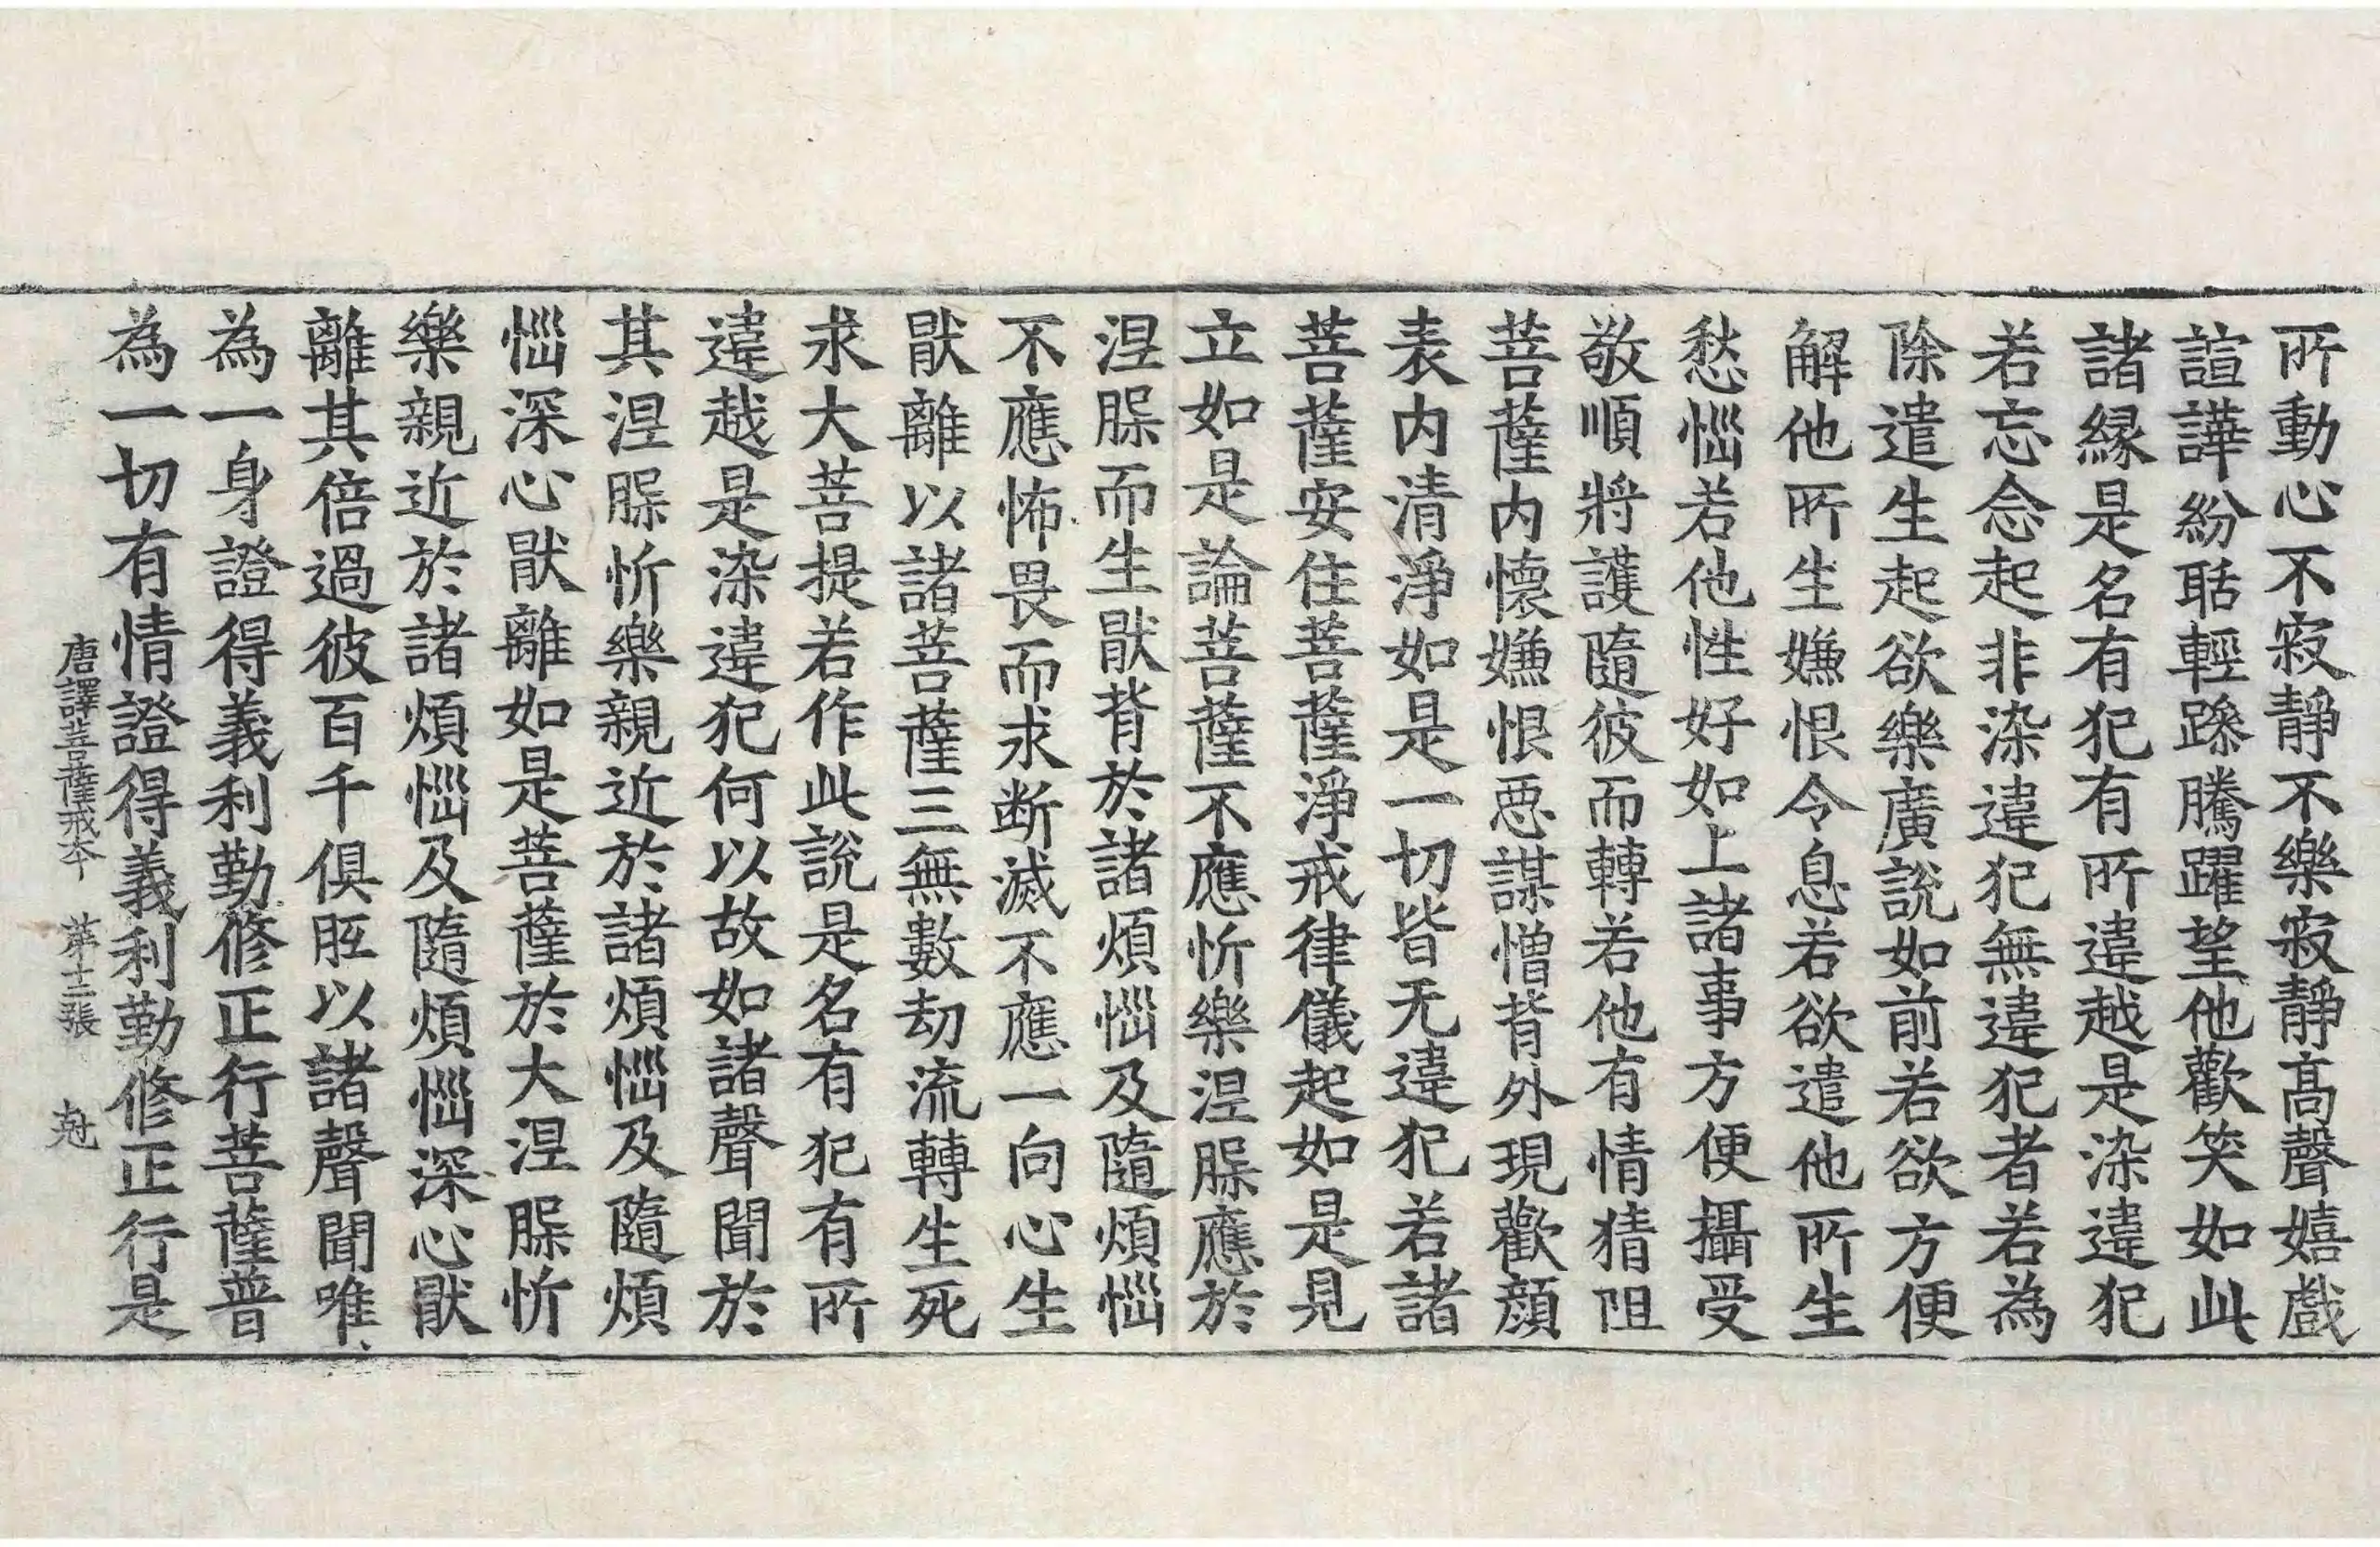 所動心不寂靜不樂寂靜髙聲嬉戲
諠譁紛聒輕躁騰躍望他歡笑如此
諸縁是名有犯有所違越是染違犯
若忘念起非染違犯無違犯者若為
除遣生起欲樂廣說如前若欲方便
解他所生嫌恨令息若欲遣他所生
愁惱若他性好如上諸事方便攝受
敬順將護隨彼而轉若他有情猜阻
菩薩內懷嫌恨惡謀憎背外現歡顔
表内清淨如是一切皆无違犯若諸
菩薩安住菩薩淨戒律儀起如是見
立如是論菩薩不應忻樂涅槃應於
涅槃而生猒背於諸煩惱及隨煩惱
不應怖畏而求断滅不應一向心生
猒離以諸菩薩三無數劫流轉生死
求大菩提若作此說是名有犯有所
違越是染違犯何以故如諸聲聞於
其涅槃忻樂親近於諸煩惱及隨煩
惱深心猒離如是菩薩於大涅槃忻
樂親近於諸煩惱及隨煩惱深心猒
離其倍過彼百千俱胝以諸聲聞唯
為一身證得義利勤修正行菩薩普
為一切有情證得義利勤修正行是
唐譯菩薩戒本 第十二張 尅